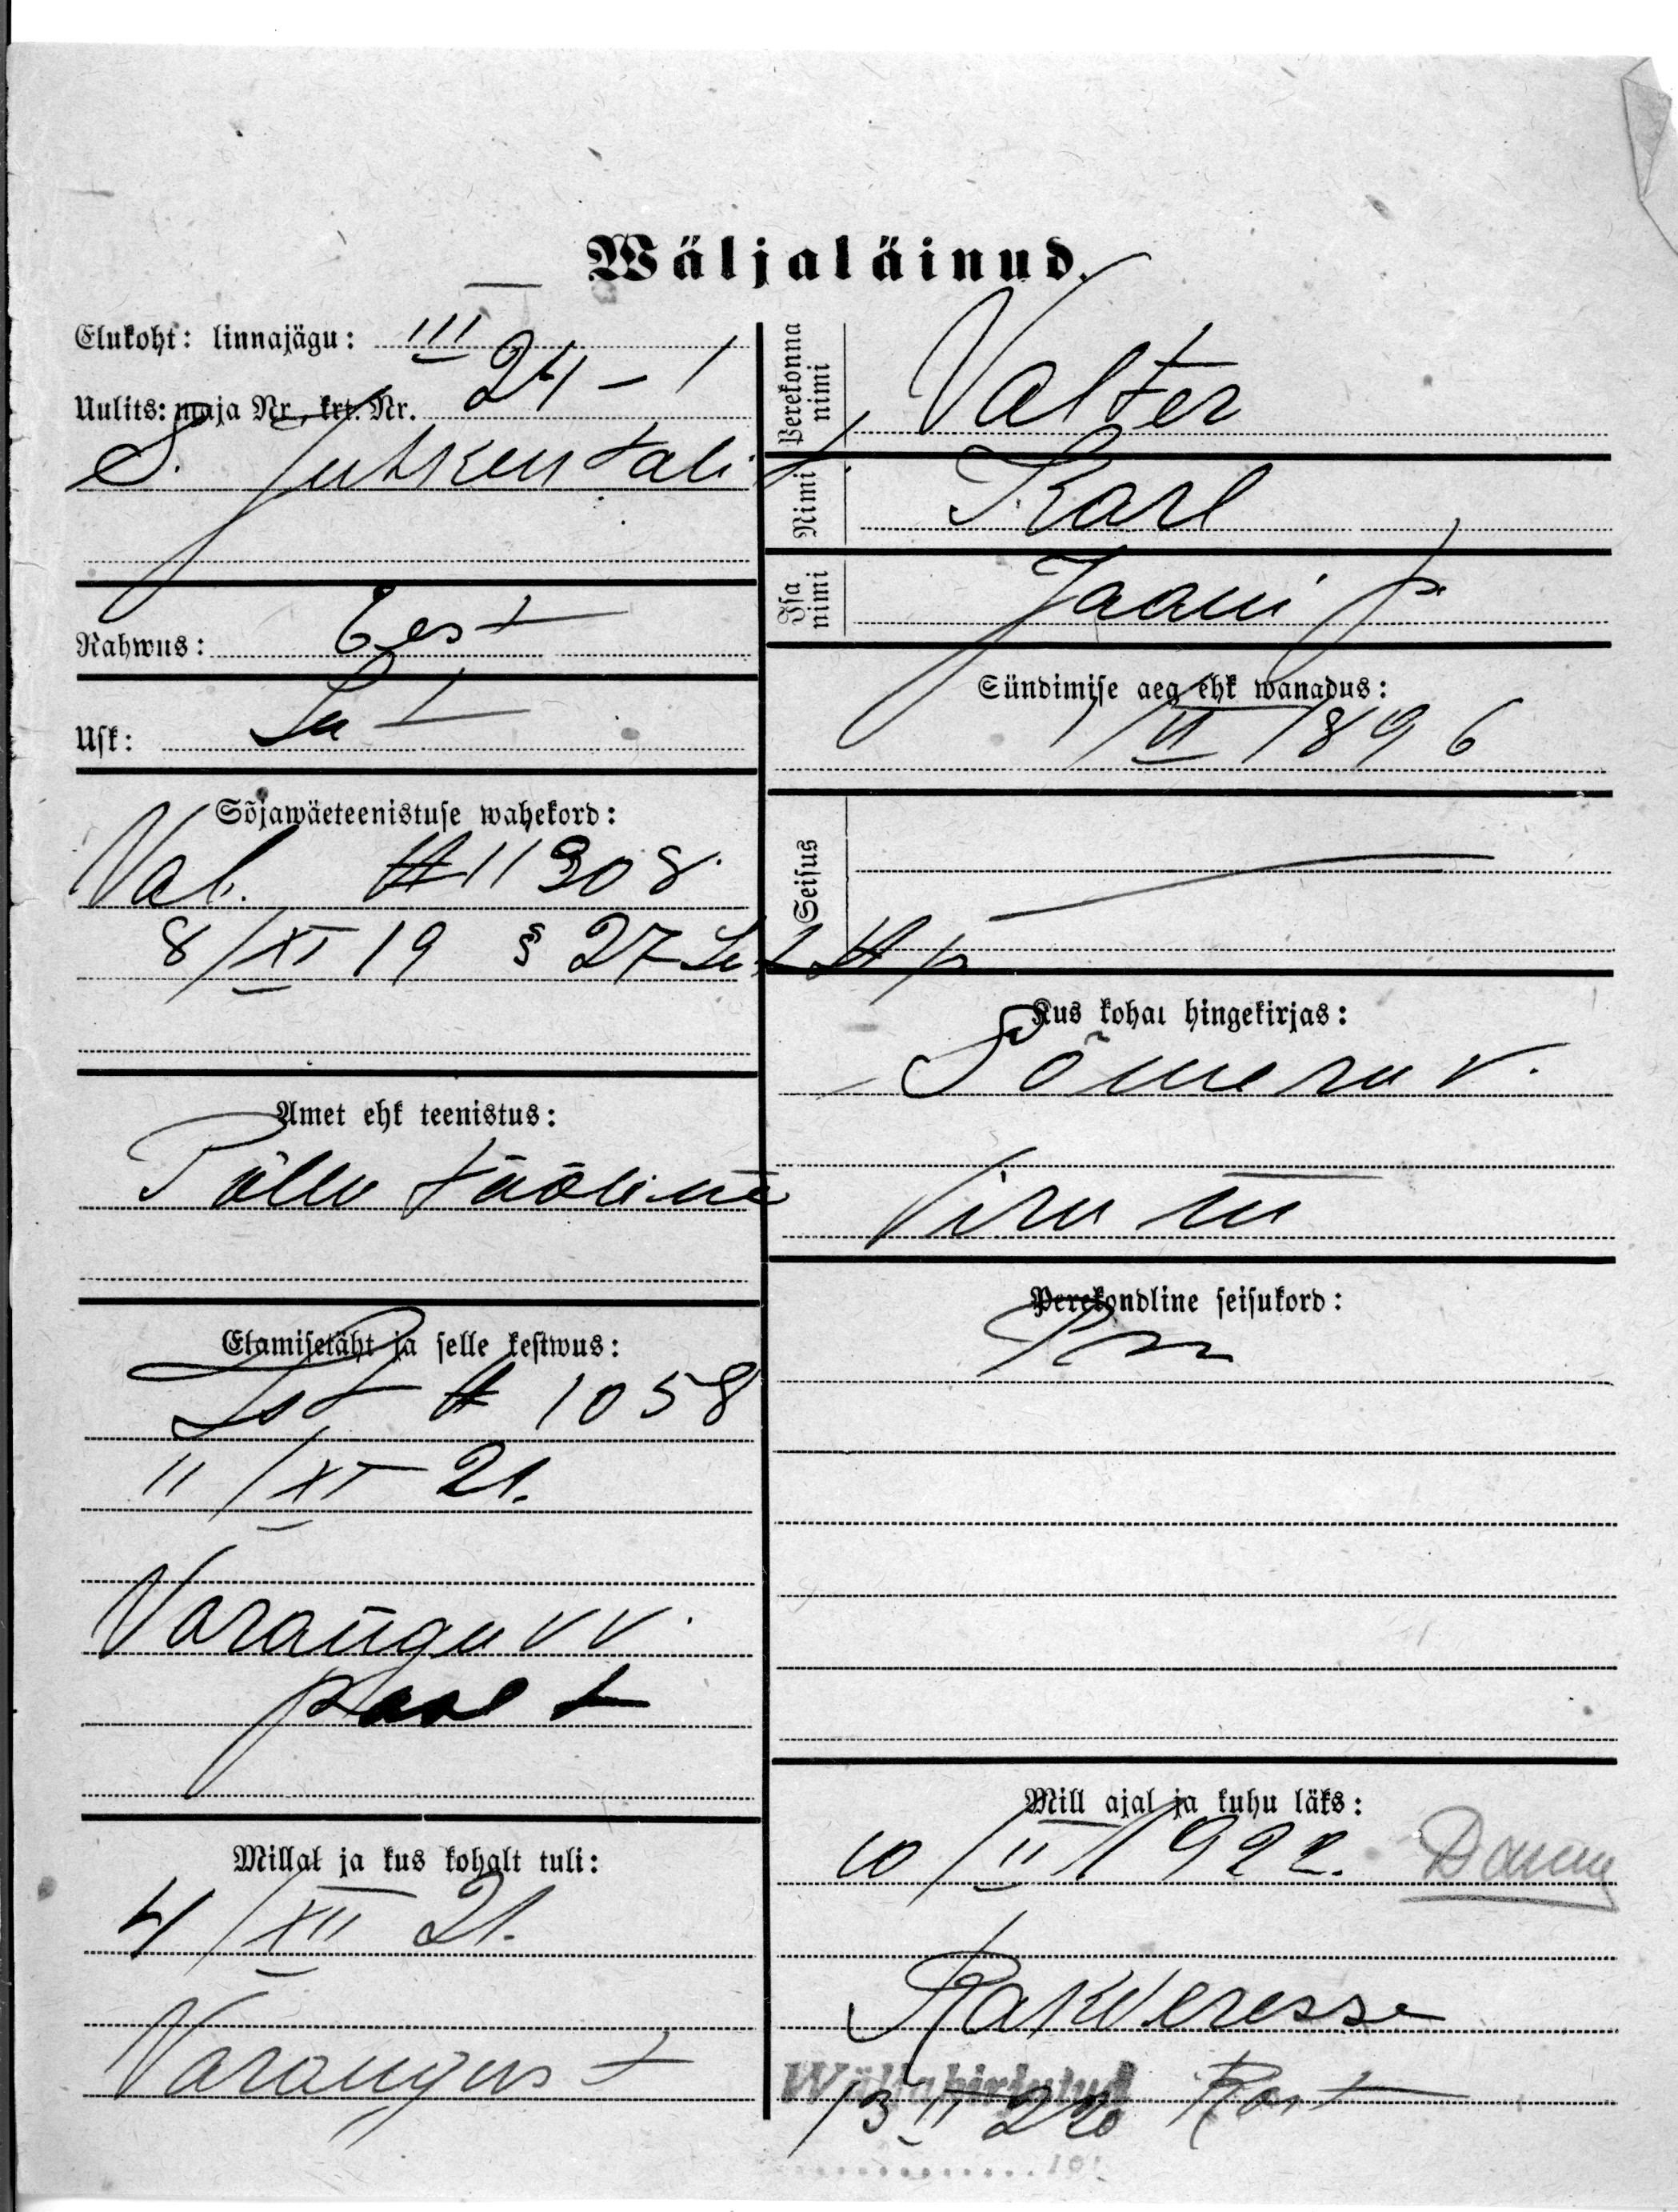 Wäljaläinud.
Elukoht: linnajägu: III
Uulits: maja Nr., krt. Nr. 24 – 1
S. Juhkentali
Rahwus: Eest
Usk: Lut
Sõjawäeteenistuse wahekord:
Vab. № 11308
8/XI 19 § 27
Amet ehk teenistus:
Põllu tööline
Elamisetäht ja selle kestwus:
№ 1058
11/XI 21.
Varangu v v.
poolt
Millal ja kus kohalt tuli:
4/XII 21.
Varangust
Perekonna nimi Valter
Nimi Karl
Isa nimi Jaani p.
Sündimise aeg ehk wanadus:
1/VI 1896
Seisus
Kus kohal hingekirjas:
Sõmeru v.
Viru m
Perekondline seisukord:
Mill ajal ja kuhu läks:
10/II 1922.
Rakveresse
Wäljakirjutud
13 II 22
191